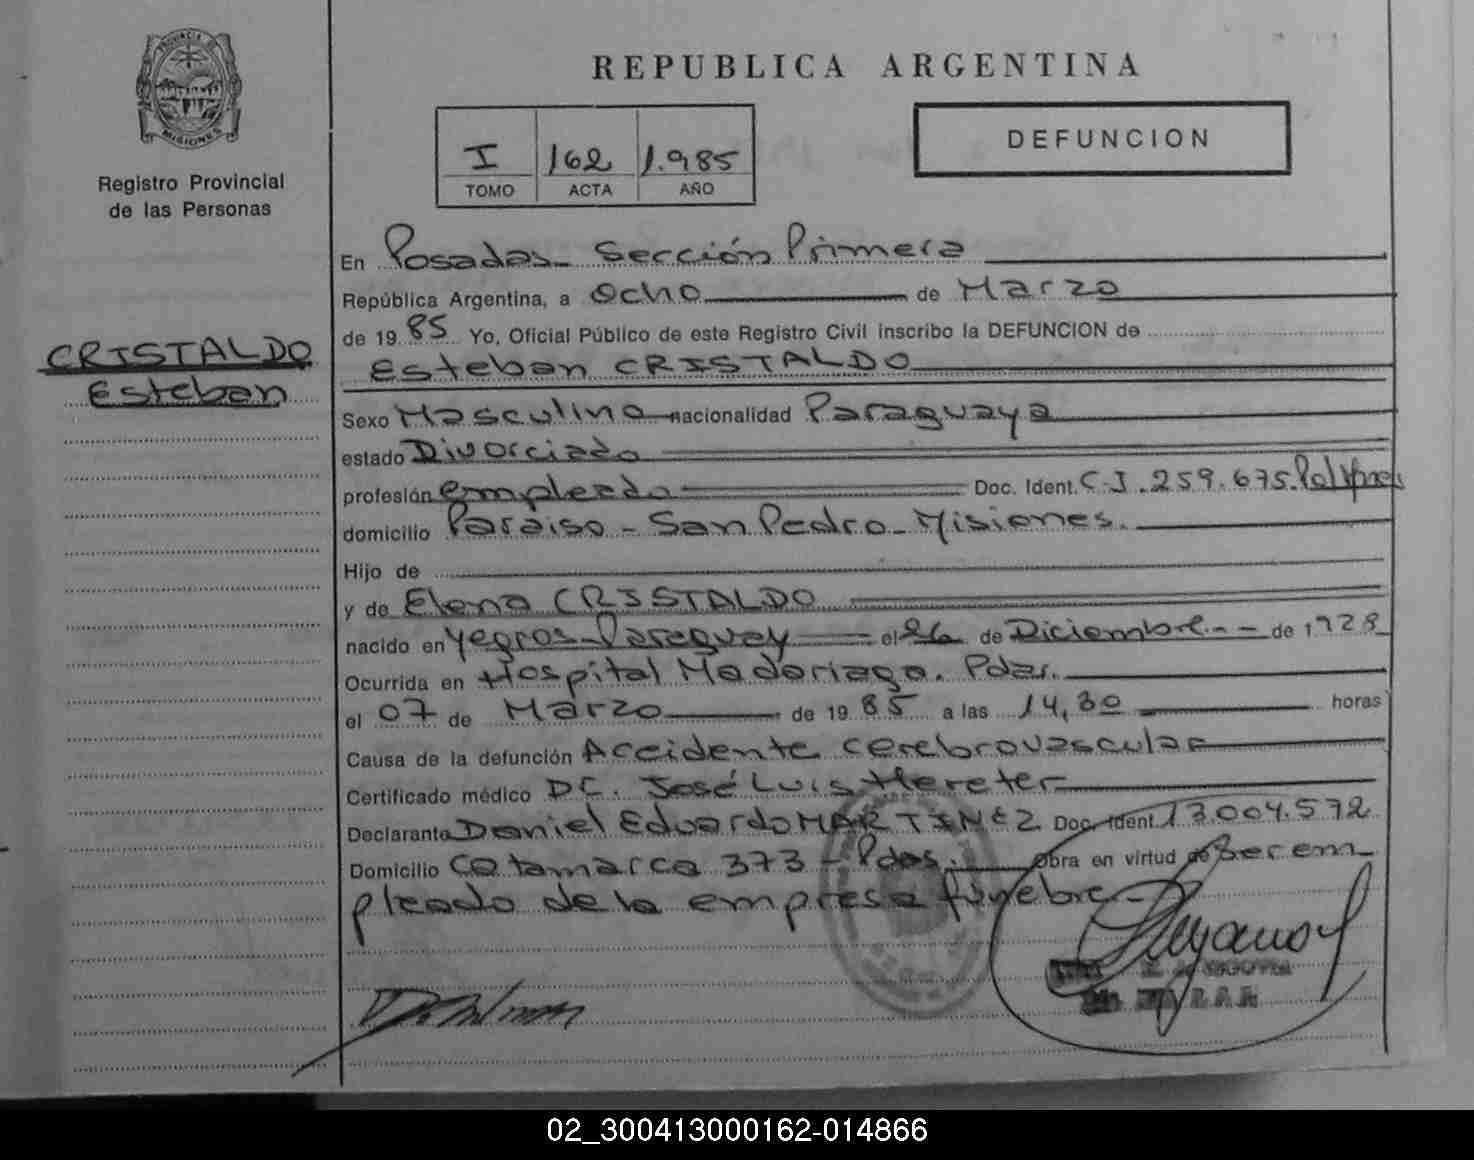 PROVINCIA DE
MISIONES
Registro Provincial
de las Personas
CRISTALDO
Esteban
REPUBLICA ARGENTINA
I 162 1.985
TOMO ACTA AÑO
DEFUNCION
En Posadas- Sección Primera
República Argentina, a Ocho de Marzo
de 19 85 Yo, Oficial Público de este Registro Civil inscribo la DEFUNCION de
Esteban CRISTALDO
Sexo Masculino nacionalidad Paraguaya
estado Divorciado
profesión empleado Doc. Ident. C.I. 259.675.
domicilio Paraiso - San Pedro - Misiones.
Hijo de
y de Elena CRISTALDO
nacido en Yegros-Paraguay el 26 de Diciembre-- de 1928
Ocurrida en Hospital Madariaga. Pdas.
el 07 de Marzo de 19 85 a las 14,30 horas
Causa de la defunción Accidente cerebrovascular
Certificado médico Dr. José Luis Hereter
Declarante Daniel Eduardo MARTINEZ Doc. Ident. 13.004.572
Domicilio Catamarca 373 - Pdas. Obra en virtud de Ser em
pleado de la empresa fúnebre-
02_300413000162-014866